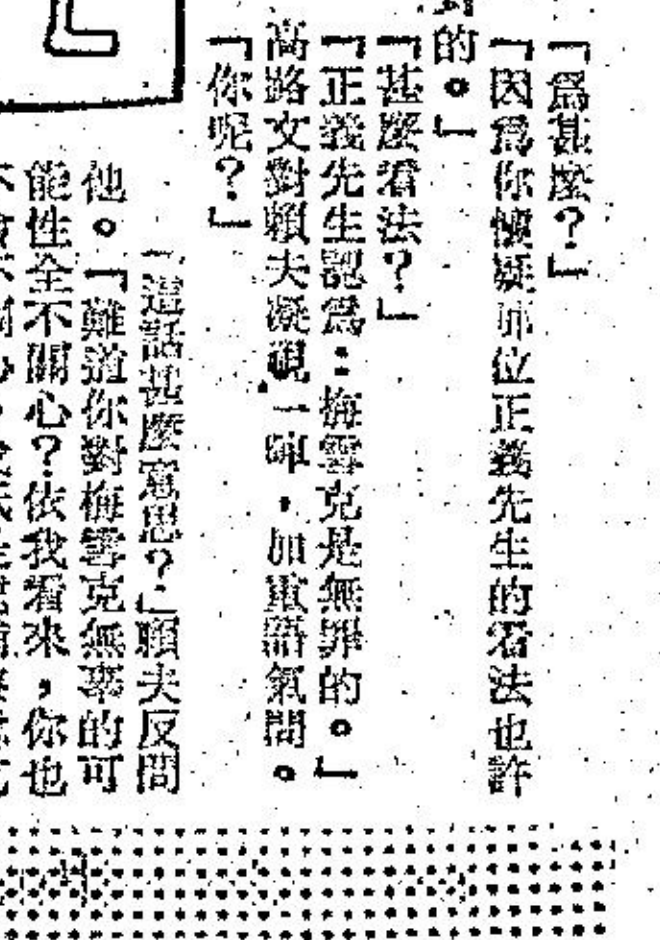 「爲甚麼?」
「因爲你懷疑那位正義先生的看法也許
對的。」
「甚麼看法?」
「正義先生認爲:梅雪克是無罪的。」
高路文對賴夫凝視一陣,加重語氣問。
「你呢?」
「這話甚麼意思?」賴夫反問
他。「難道你對梅雪克無辜的可
能性全不關心?依我看來,你也